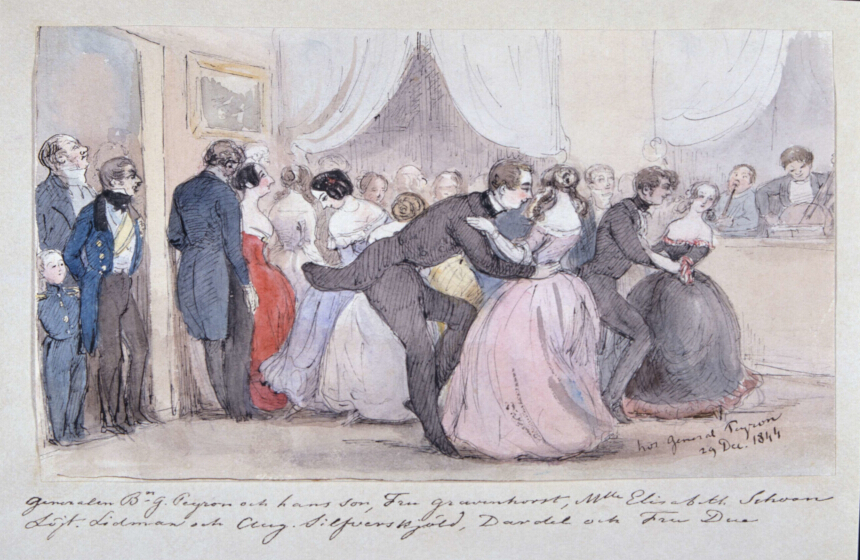 hos General Peyron
29 Dec. 1844
Generalen Bⁿ G. Peyron och hans son, Fru Gravenhorst, Mlle Elisabeth Schoon
Löjt. Lidman och Aug. Silfverskjöld, Dardel och Fru Due